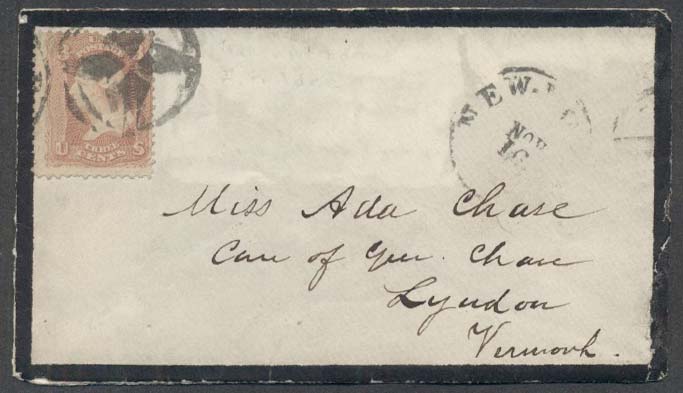 U S
THREE
CENTS
NEW-YO
NOV
16
Miss Ada Chase
Care of Gen. Chase
Lyndon
Vermont.